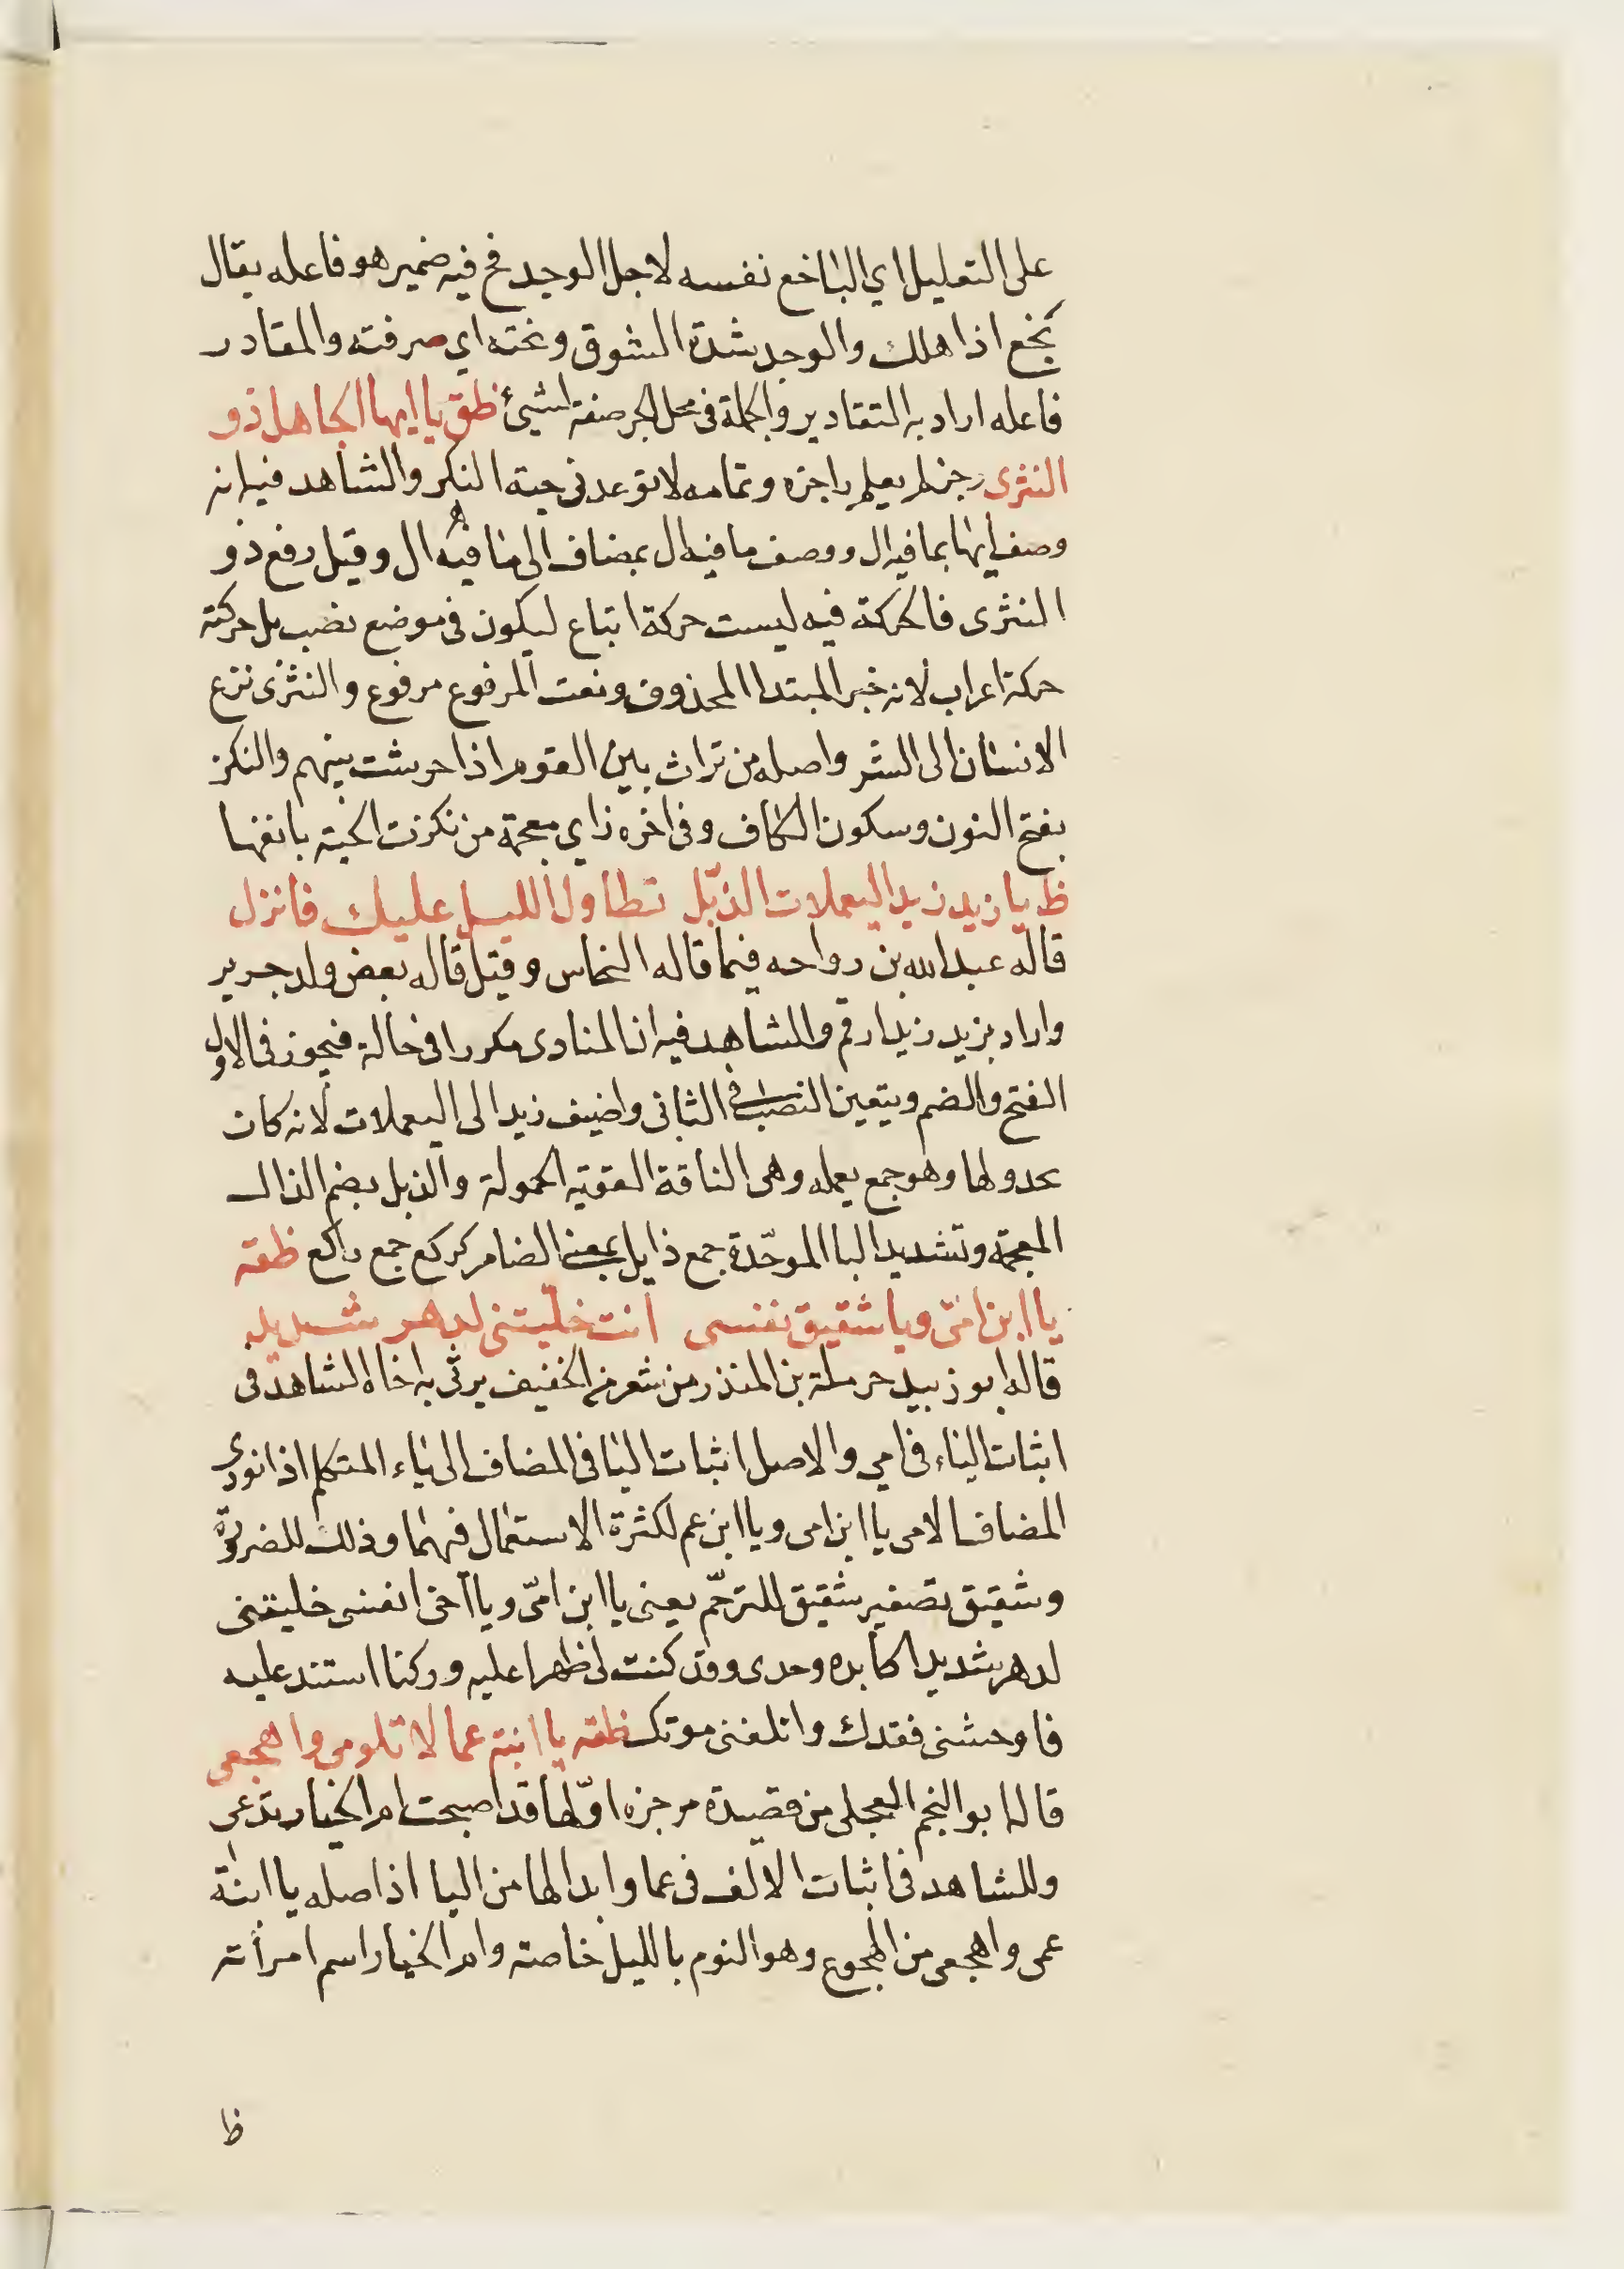 على التعليل اي الباخع نفسه لاجل الوجد فح فيه ضمير هو فاعله يقال
بخع اذا هلك والوجد شدة الشوق ونحته اي صرفته والمقادر
فاعله اراد به التقادير والجملة في محل الجر صفة لشيئ ظق يا ايها الجاهل ذو
التنزى رجز لم يعلم راجزه وتمامه لا توعدني حية النكز والشاهد فيه انه
وصف ايها بما فيه ال ووصف ما فيه ال بمضاف الى ما فيه ال وقيل رفع ذو
التنزى فالحركة فيه ليست حركة اتباع ليكون في موضع نصب بل حركته
حركة اعراب لانه خبر المبتدا المحذوف ونعت المرفوع مرفوع والتنزى نزع
الانسان الى الشر واصله من نزات بين القوم اذا حرشت بينهم والنكز
بفتح النون وسكون الكاف وفي اخره زاي معجمة من نكزت الحية بانفها
ظ يا زيد زيد اليعملات الذبّل تطاول الليل عليك فانزل
قاله عبد الله بن رواحه فيما قاله النحاس وقيل قاله بعض ولد جرير
واراد بزيد زيد ارقم والشاهد فيه ان المنادى مكررا في حالة فيجوز في الاول
الفتح والضم ويتعين النصب في الثاني واضيف زيد الى اليعملات لانه كان
يحدو لها وهو جمع يعمله وهي الناقة القوية الحمولة والذبل بضم الذال
المعجمة وتشديد البا الموحّدة جمع ذابل بمعنى الضامر كركع جمع راكع ظقه
يا ابن امّي ويا شقيق نفسي انت خليتني لدهر شديد
قاله ابو زبيد حرملة بن المنذر من شعر من الخفيف يرثي به اخاه الشاهد في
اثبات الياء في امي والاصل اثبات اليا في المضاف الى ياء المتكلم اذا نودي
المضاف الا مي يا ابن امي ويا ابن عم لكثرة الاستعمال فيهما وذلك للضرورة
وشقيق تصغير شقيق للترحّم يعني يا ابن امّي ويا اخي نفسي خليتني
لدهر شديد اكابده وحدى وقد كنت لي ظهرا عليه وركنا استند عليه
فاوحشني فقدك واتلفني موتك ظقه يا ابنة عما لا تلومي واهجعي
قاله ابو النجم العجلي من قصيدة مرجزه اوّلها قد اصبحت ام الخيار تدعي
وللشاهد في اثبات الالف في عما وابدالها من اليا اذ اصله يا ابنة
عمي واهجعي من الهجوع وهو النوم بالليل خاصة وام الخيار اسم امرأته
ظ